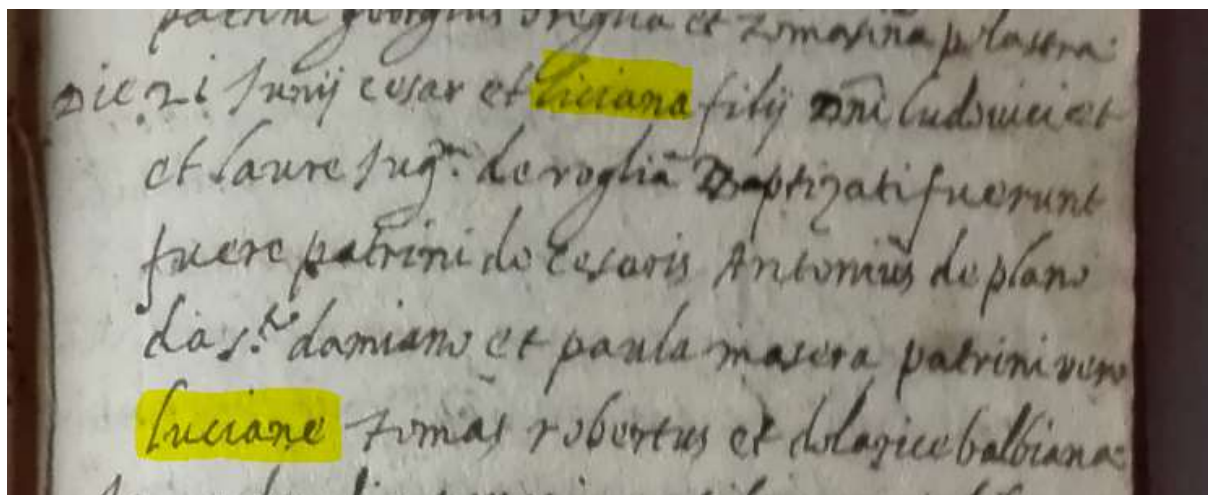 patrini georgius et Zomasina
Die 21 Junij cesar et luciana filij Dni ludovici et
et laure Jug. de roglia Baptizati fuerunt
fuere patrini do Cesaris Antonius de plano
da s.to damiano et paula masera patrini vero
luciane tomas robertus et balbiana